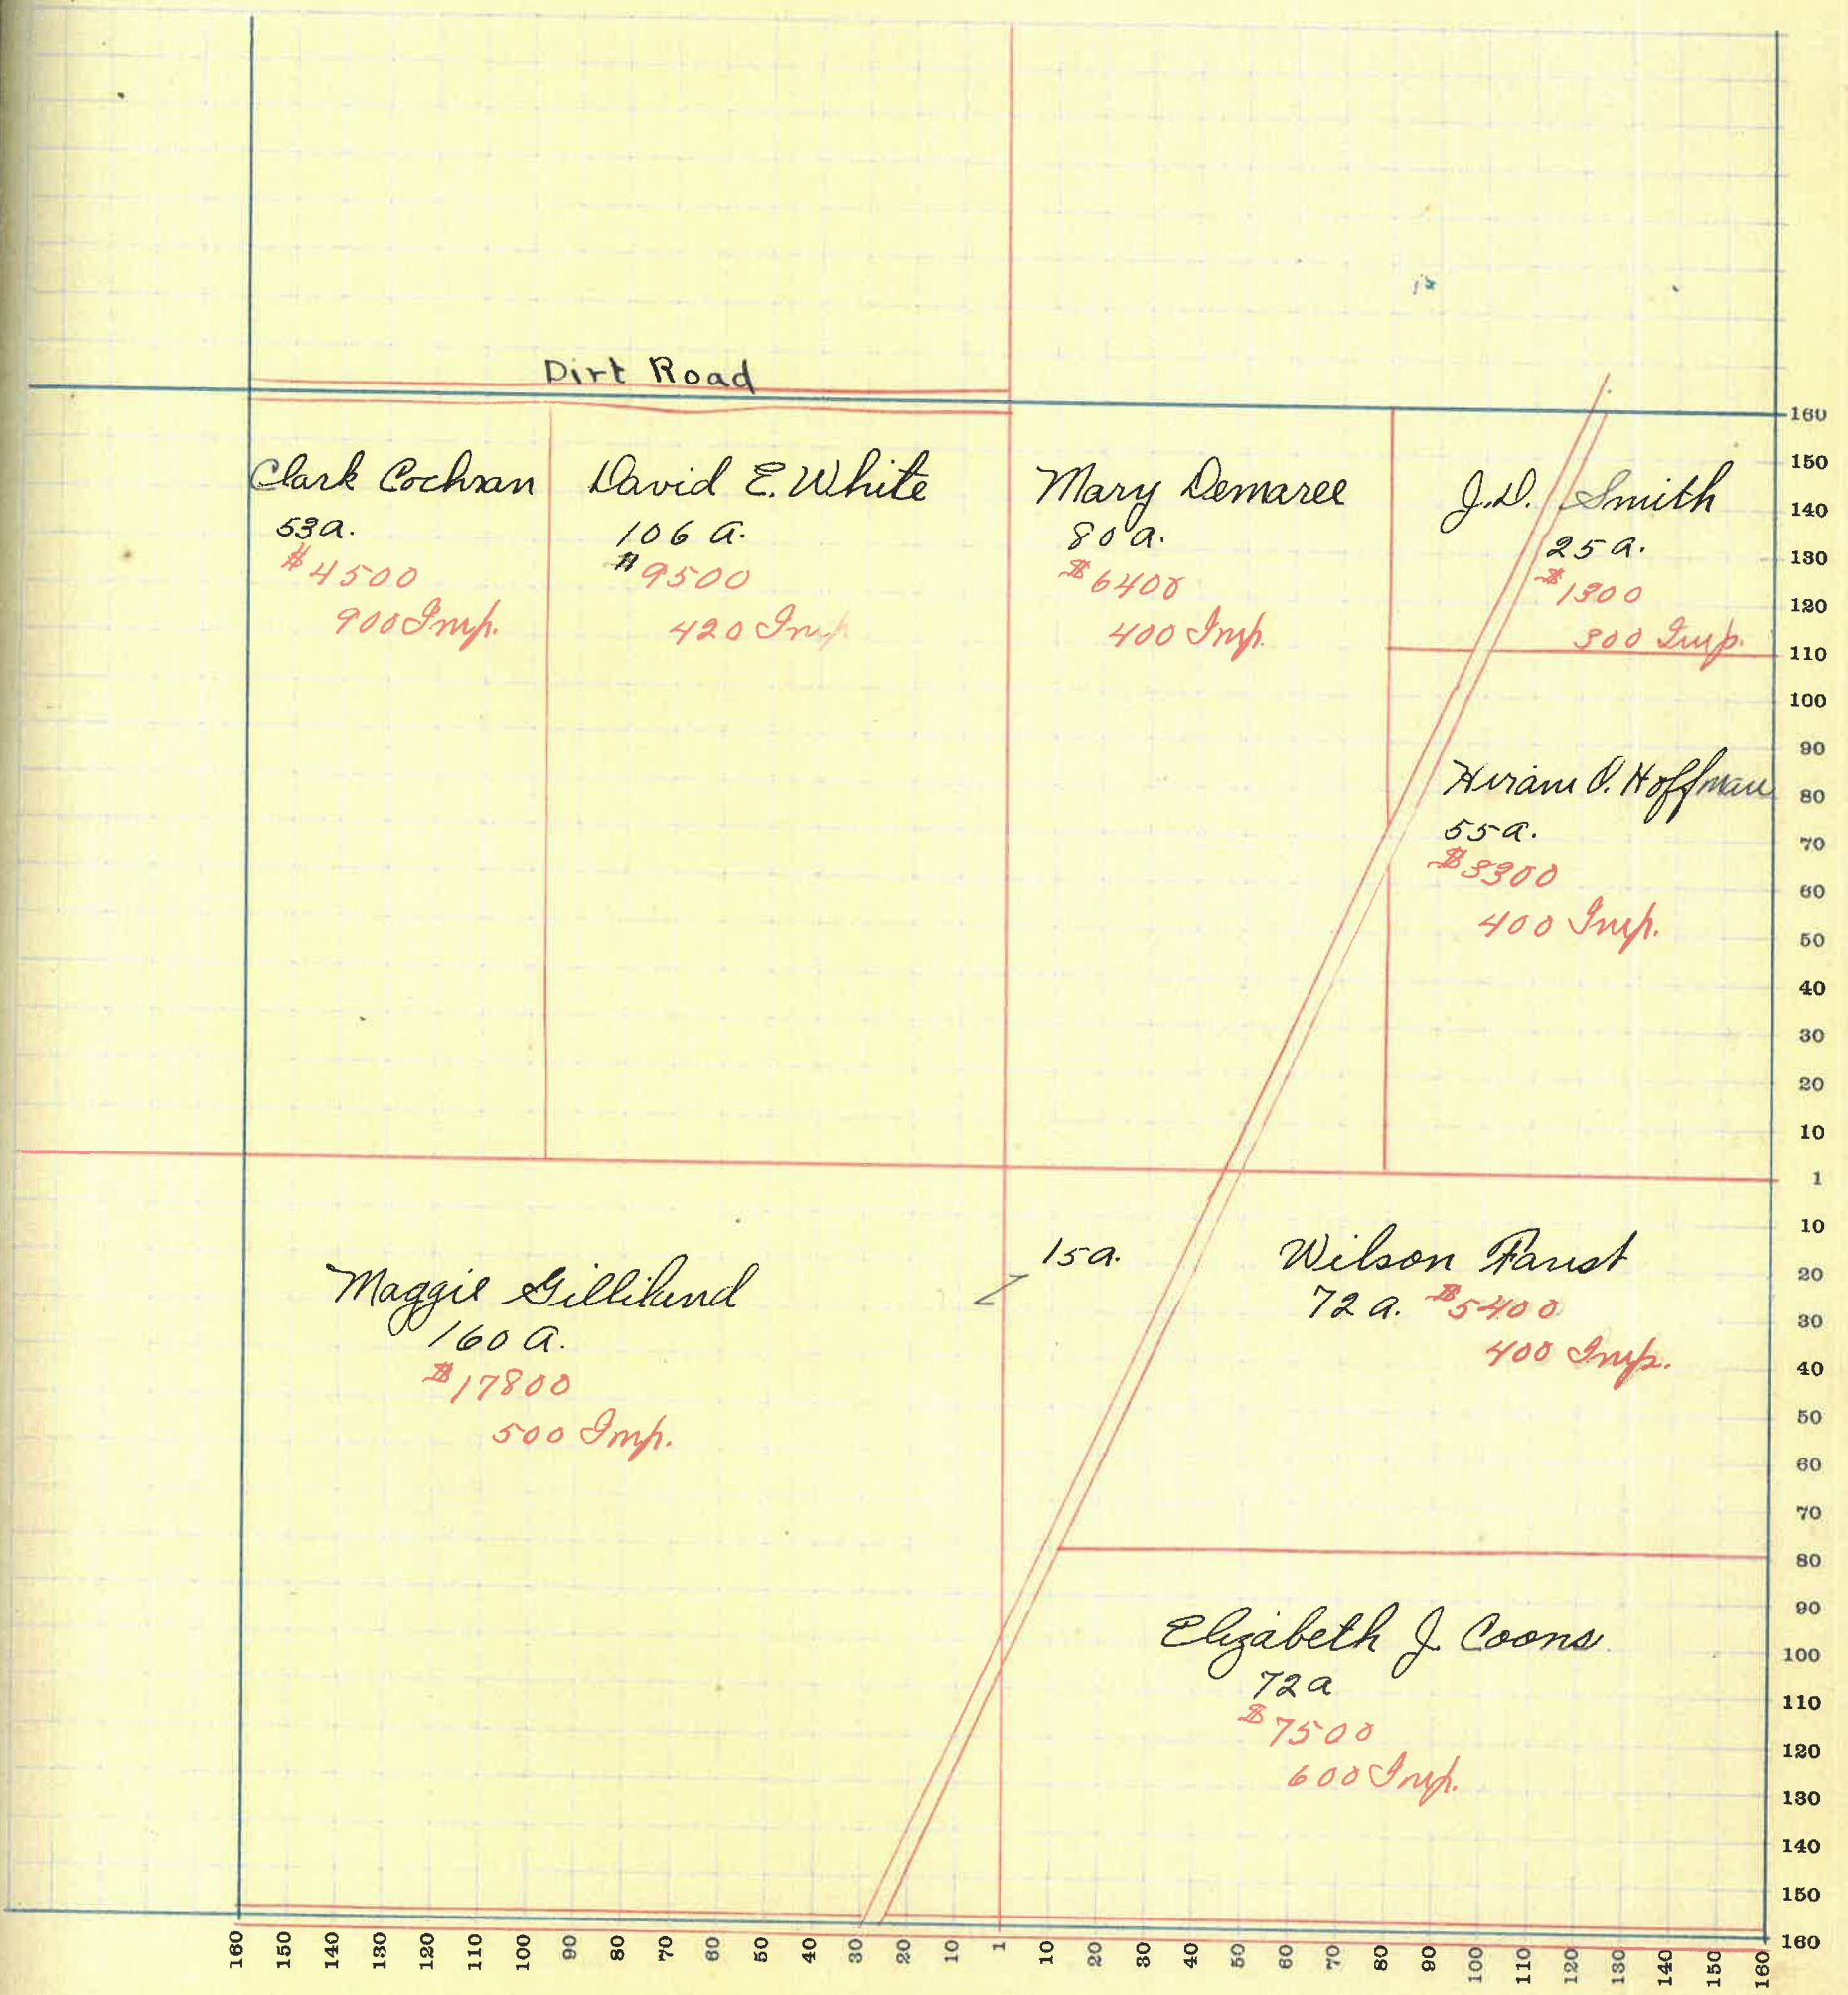 Dirt Road
Clark Cochran
53a.
$4500
900 Imp.
David E. White
106 a.
$9500
420 Imp
Mary Demaree
80 a.
$6400
400 Imp.
J.D. Smith
25 a.
$1300
300 Imp.
Hiram O. Hoffman
55a.
$3300
400 Imp.
Maggie Gilliland
160 a.
$17800
500 Imp.
15a.
Wilson Faust
72 a. $5400
400 Imp.
Elizabeth J. Coons
72a
$7500
600 Imp.
160
150
140
130
120
110
100
90
80
70
60
50
40
30
20
10
1
10
20
30
40
50
60
70
80
90
100
110
120
130
140
150
160
160 150 140 130 120 110 100 90 80 70 60 50 40 30 20 10 1 10 20 30 40 50 60 70 80 90 100 110 120 130 140 150 160